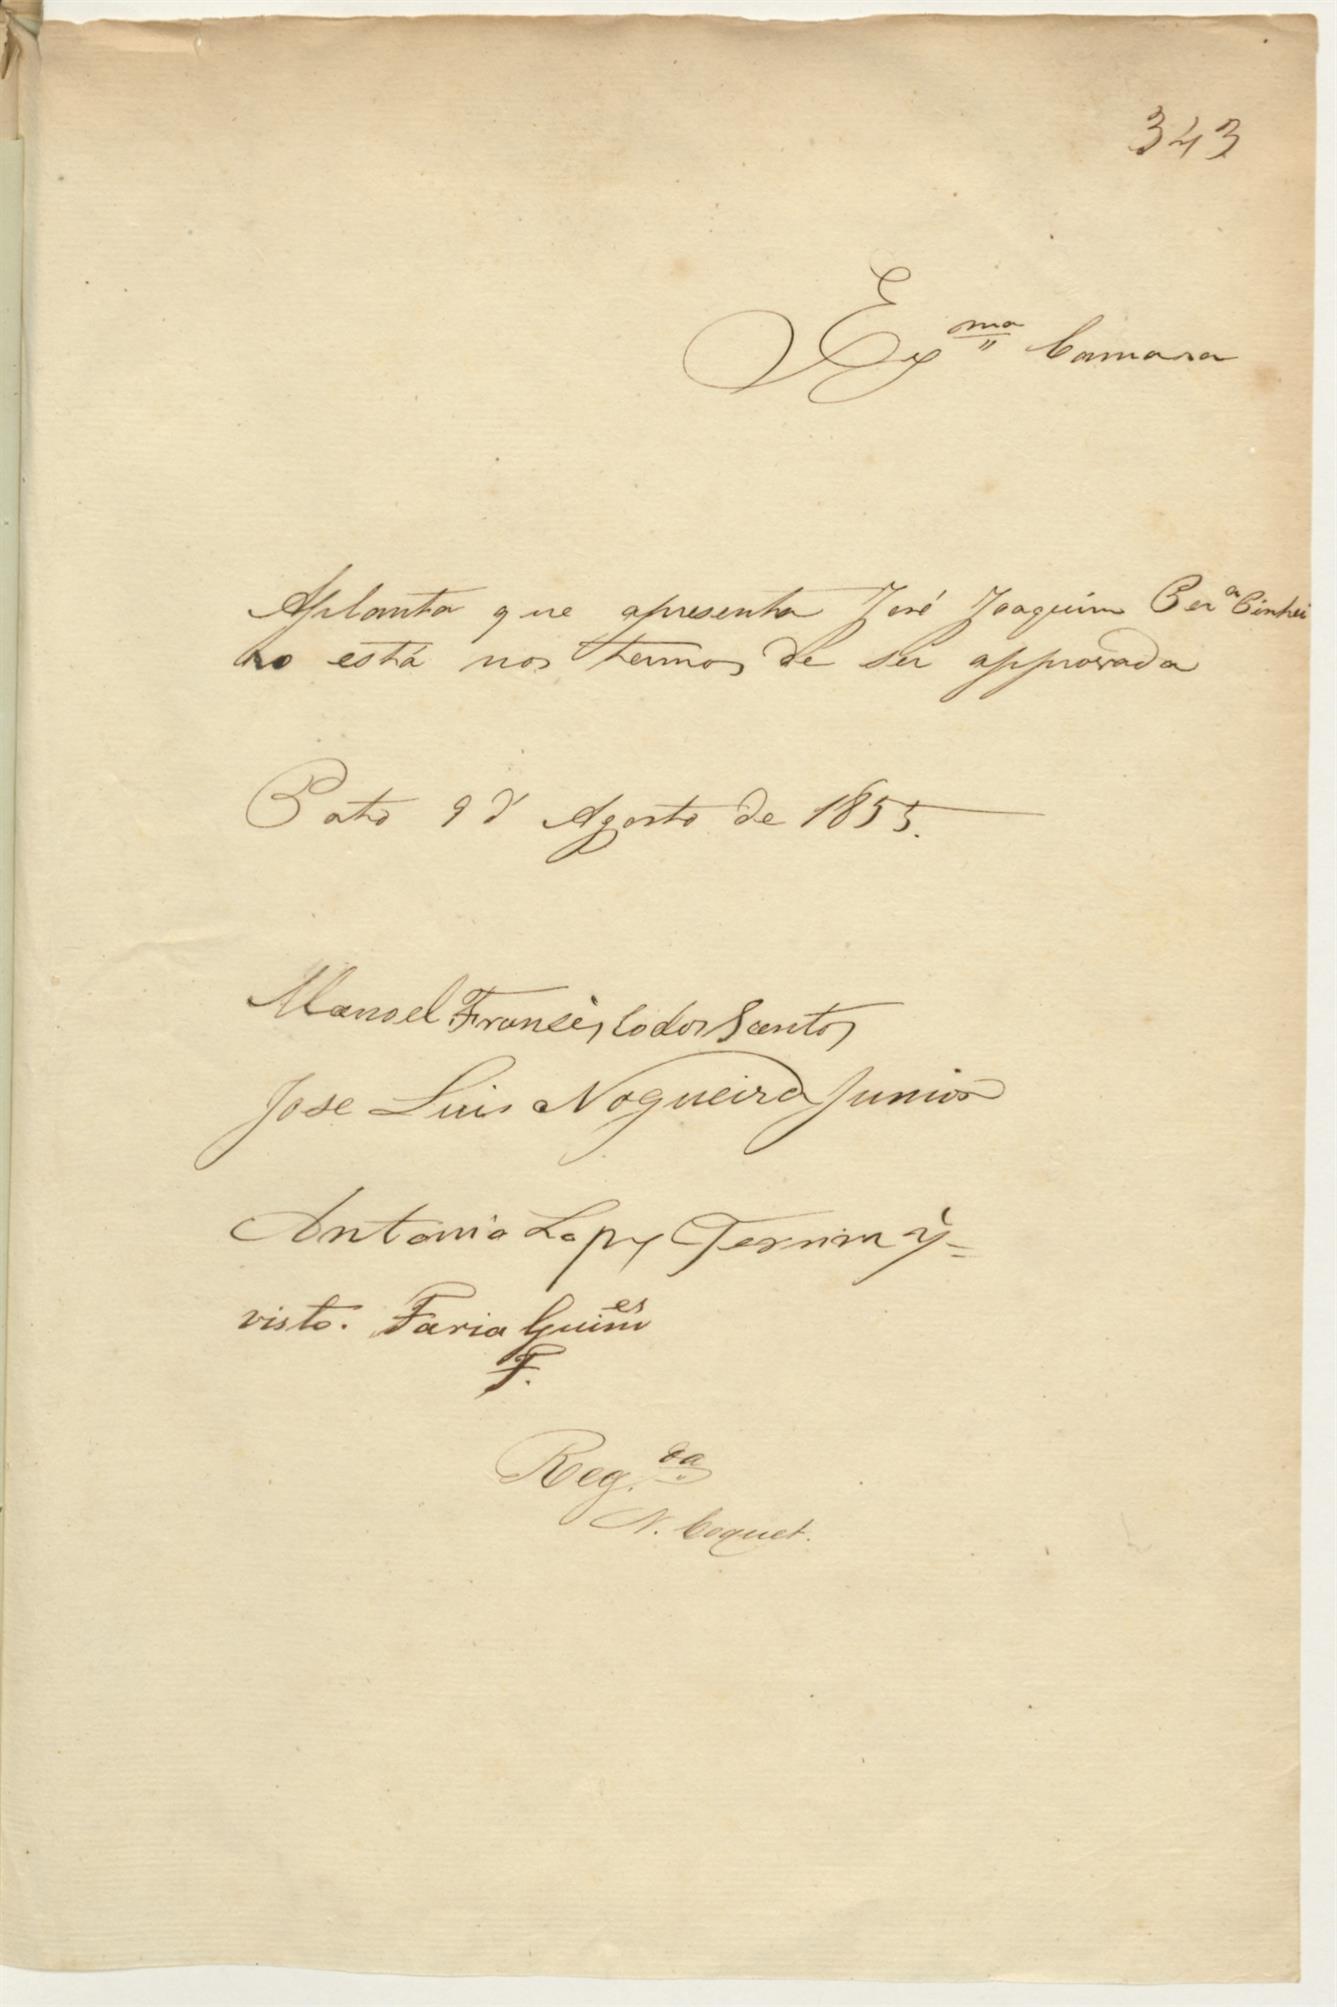 343
Exma Camara
A planta que apresenta José Joaquim Pera Pinhei
ro está nos termos de ser approvada
Porto 9 d' Agosto de 1855.
Manoel Francisco dos Santos
Jose Luis Nogueira Junior
Antonio Lopes
visto. Faria Guimes
P.
Reg.da
N. Coquet.